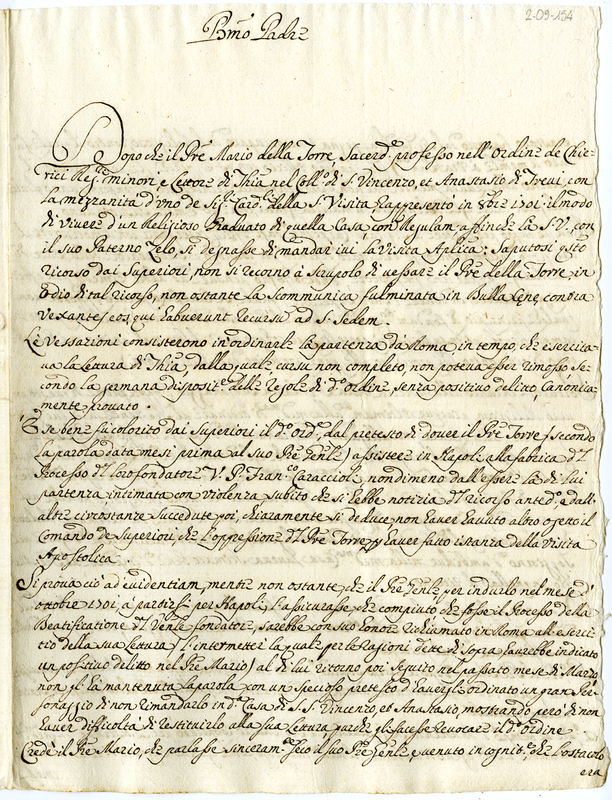 2-09-154
Bmo Padre
Dopo che il Pre Mario della Torre, Sacerd.e professo nell'Ordine de Chie-
rici Reg.ri minori, e Lettore di Thia nel Coll.o di S. Vincenzo, et Anastasio di Trevi, con
la mezzanità d'uno de Sig.ri Card.li della S. Visita rappresentò in 8bre 1701 il modo
di vivere d'un Religioso Graduato di quella Casa con Regulam, affinche la S.V. con
il suo Paterno Zelo, si degnasse di mandar ivi la Visita Aplica: Saputosi q.sto
ricorso dai Superiori, non si recorno à scrupolo di vessare il Pre della Torre in
odio di tal ricorso, non ostante la scommunica fulminata in Bulla Cene contra
vexantes eos, qui habuerunt recursum ad S. Sedem.
Le vessazioni consisterono in ordinarli la partenza da Roma, in tempo, che esercita-
va la lettura di Thia, dalla quale cursu non completo, non poteva esser rimosso se-
condo la germana disposit.e delle regole di d.o Ordine, senza positivo delitto, Canonica
mente provato.
E se bene fù colorito dai Superiori il d.o Ord.e, dal pretesto di dover il Pre Torre (secondo
la parola data mesi prima al suo Pre Genle) assistere in Napoli alla fabrica del
Processo del loro fondatore V. P. Fran.co Caracciolo, nondimeno dall'essere la di lui
partenza intimata con violenza subito che si hebbe notitia del ricorso anted.o, e dall'
altre circostanze succedute poi, chiaramente si deduce, non haver havuto altro ogetto il
Comando de Superiori, che l'oppressione del Pre Torre, p haver fatto istanza della Visita
Apostolica.
Si prova ciò ad evidentiam, mentre non ostante, che il Pre Genle per indurlo nel mese d'
ottobre 1701, à partirsi per Napoli, l'assicurasse che compiuto che fosse il Processo della
Beatificatione del Venle fondatore, sarebbe con suo honore richiamato in Roma all'eserci-
tio della sua lettura (l'intermetter la quale per le ragioni dette di sopra haurebbe indicato
un positivo delitto nel Pre Mario) al di lui ritorno poi seguito nel passato mese di Marzo
non gl'hà mantenuta la parola con un specioso pretesto d'havergli ordinato un gran Per-
sonaggio di non rimandarlo in d.a Casa di S.S. Vincenzo, et Anastasio, mostrando però di non
haver difficoltà di restituirlo alla sua lettura purche gli facesse revocare il d.o ordine.
Credè il Pre Mario, che parlasse sinceram.te seco il suo Pre Genle, e venuto in cognit.e, che l'ostacolo
era